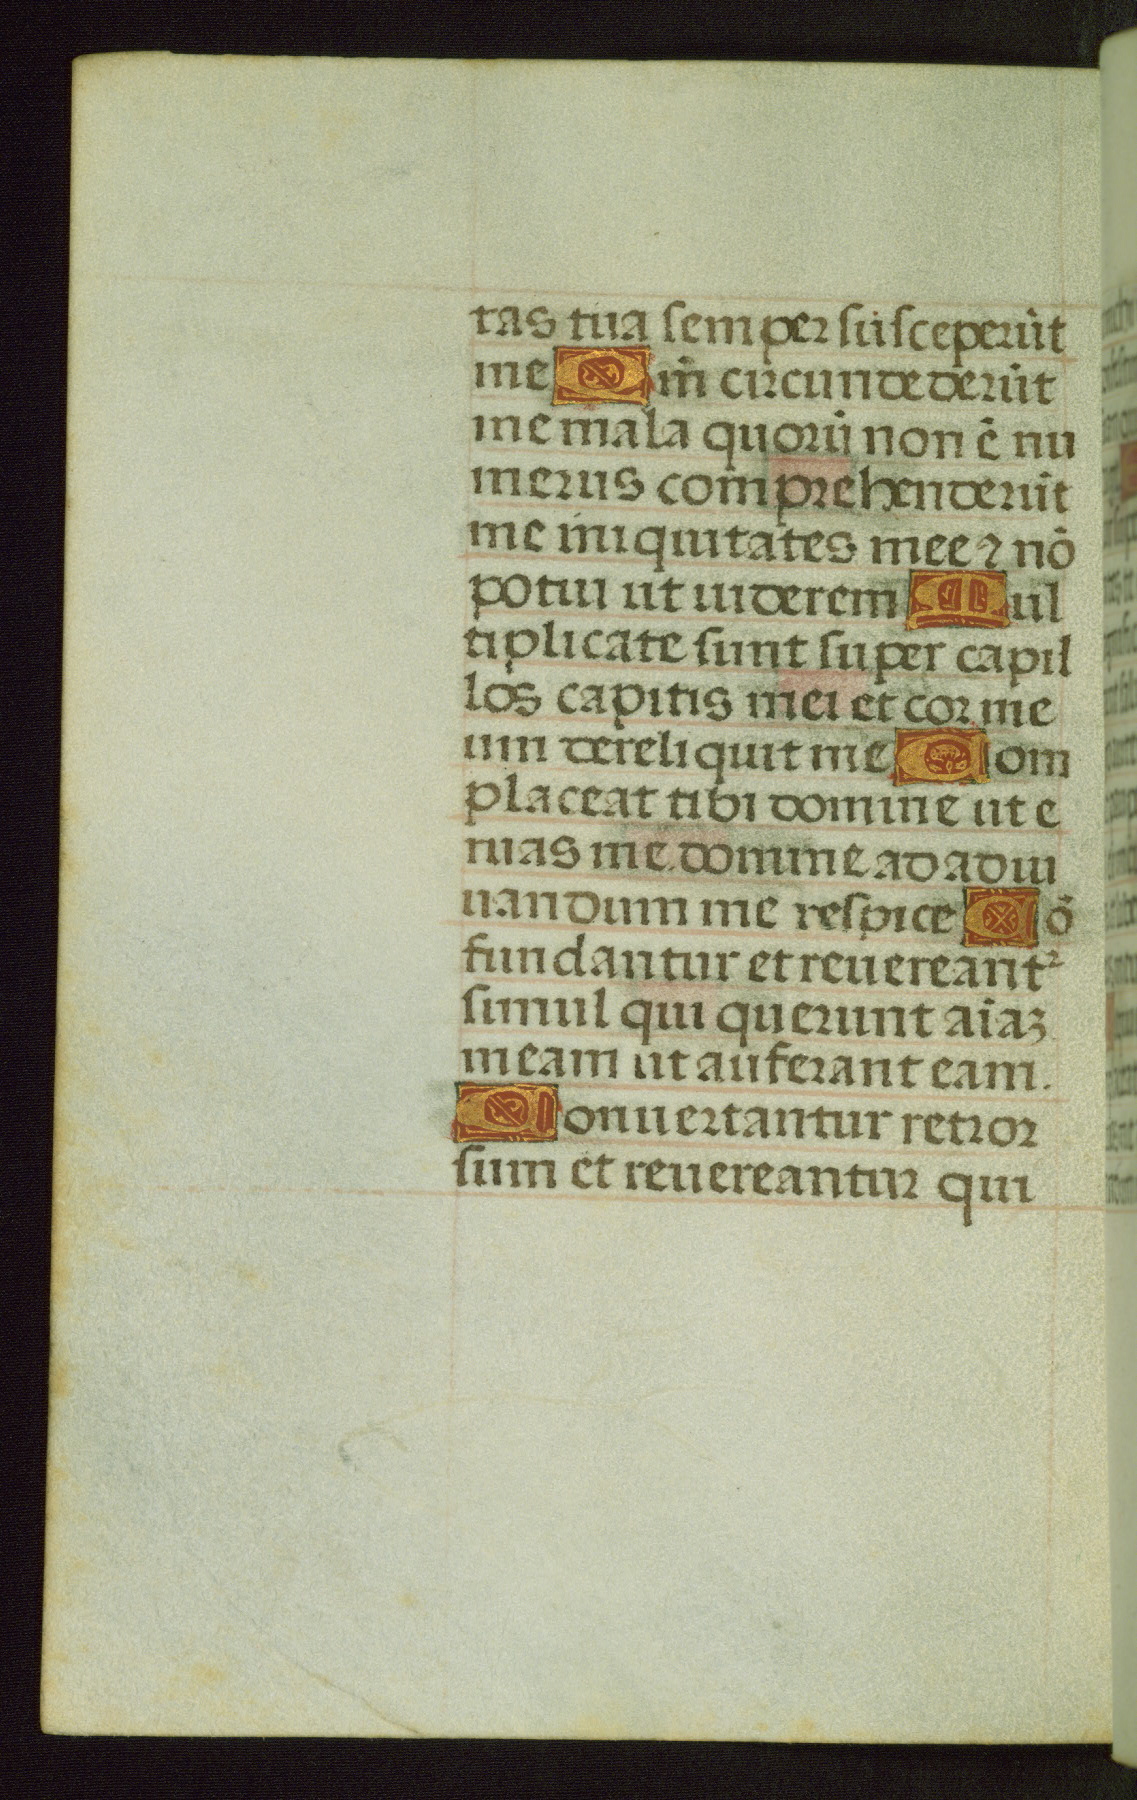 tas tua semper susceperūt
me Qm̄ circundederūt
me mala quorū non ē nu
merus comprehenderūt
me iniquitates mee ⁊ nō
potui ut uiderem Mul
tiplicate sunt super capil
los capitis mei et cor me
um dereliquit me Com
placeat tibi domine ut e
ruas me domine ad adiu
uandum me respice Cō
fundantur et reuereant²
simul qui querunt aīaʒ
meam ut auferant eam.
Conuertantur retror
sum et reuereantur qui